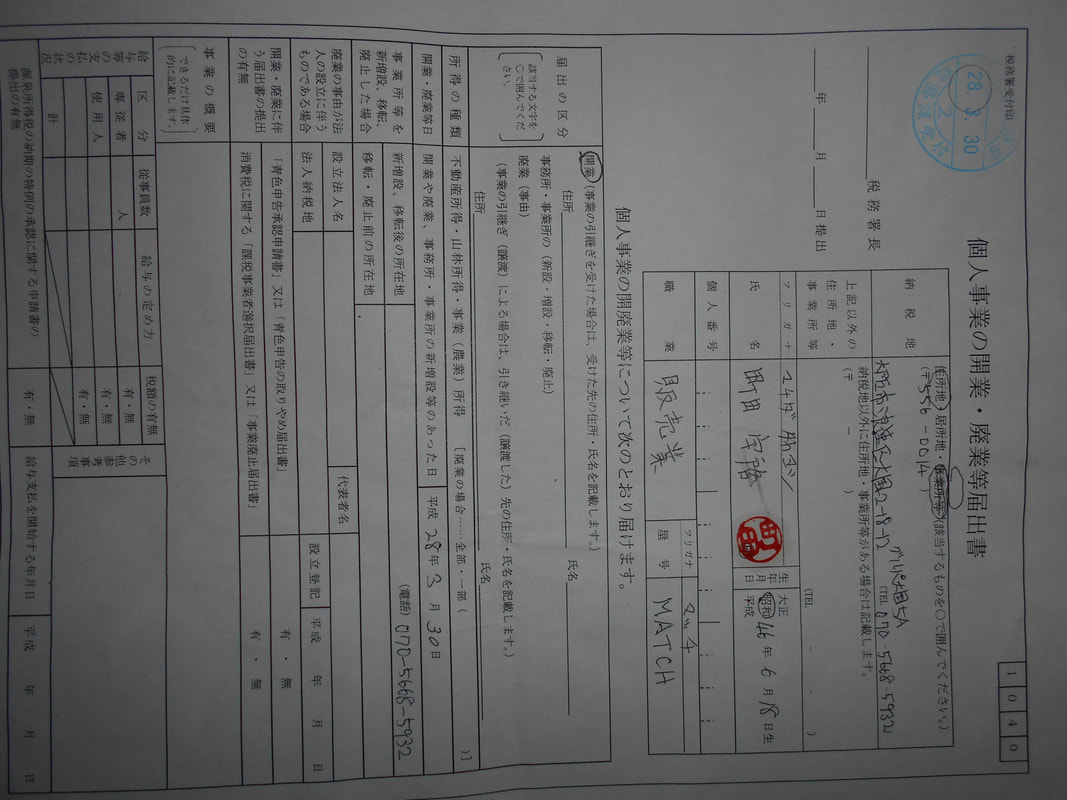 税務署受付印
28. 3. 30
2
1040
個人事業の開業・廃業等届出書
税務署長
年 月 日提出
納税地
住所地・居所地・事業所等(該当するものを○で囲んでください。)
(〒556-0014)
大阪市浪速区大国2-8-12
(TEL 070-5668-5932)
上記以外の住所地・事業所等
納税地以外に住所地・事業所等がある場合は記載します。
(〒 - )
(TEL - - )
フリガナ
氏名
生年月日
大正
昭和
平成
46年6月18日生
個人番号
職業
販売業
フリガナ
マッチ
屋号
MATCH
個人事業の開廃業等について次のとおり届けます。
届出の区分
該当する文字を○で囲んでください。
開業(事業の引継ぎを受けた場合は、受けた先の住所・氏名を記載します。)
住所 氏名
事務所・事業所の(新設・増設・移転・廃止)
廃業(事由)
(事業の引継ぎ(譲渡)による場合は、引き継いだ(譲渡した)先の住所・氏名を記載します。)
住所 氏名
所得の種類
不動産所得・山林所得・事業(農業)所得 [廃業の場合……全部・一部( )]
開業・廃業等日
開業や廃業、事務所・事業所の新増設等のあった日
平成28年3月30日
事業所等を新増設、移転、廃止した場合
新増設、移転後の所在地
(電話) 070-5668-5932
移転・廃止前の所在地
廃業の事由が法人の設立に伴うものである場合
設立法人名
代表者名
法人納税地
設立登記
平成 年 月 日
開業・廃業に伴う届出書の提出の有無
「青色申告承認申請書」又は「青色申告の取りやめ届出書」
有・無
消費税に関する「課税事業者選択届出書」又は「事業廃止届出書」
有・無
事業の概要
できるだけ具体的に記載します。
給与等の支払の状況
区分 従事員数 給与の定め方 税額の有無
専従者 人 有・無
使用人 有・無
計 有・無
その他参考事項
源泉所得税の納期の特例の承認に関する申請書の提出の有無
有・無
給与支払を開始する年月日
平成 年 月 日